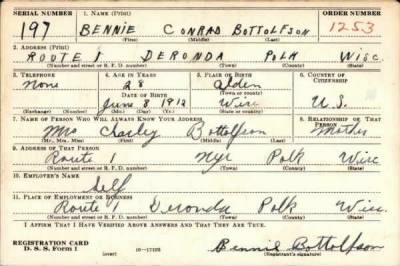 SERIAL NUMBER 1. NAME (Print) ORDER NUMBER
197 BENNIE CONRAD BOTTOLFSON 1253
(First) (Middle) (Last)
2. ADDRESS (Print)
ROUTE 1 DERONDA POLK WISC.
(Number and street or R. F. D. number) (Town) (County) (State)
3. TELEPHONE 4. AGE IN YEARS 5. PLACE OF BIRTH 6. COUNTRY OF CITIZENSHIP
None 28 Alden
DATE OF BIRTH (Town or county)
June 8 1912 Wisc U.S.
(Exchange) (Number) (Mo.) (Day) (Yr.) (State or country)
7. NAME OF PERSON WHO WILL ALWAYS KNOW YOUR ADDRESS 8. RELATIONSHIP OF THAT PERSON
Mrs Charley Bottolfson Mother
(Mr., Mrs., Miss) (First) (Middle) (Last)
9. ADDRESS OF THAT PERSON
Route 1 Nye Polk Wisc
(Number and street or R. F. D. number) (Town) (County) (State)
10. EMPLOYER'S NAME
Self
11. PLACE OF EMPLOYMENT OR BUSINESS
Route 1 Deronda Polk Wisc.
(Number and street or R. F. D. number) (Town) (County) (State)
I AFFIRM THAT I HAVE VERIFIED ABOVE ANSWERS AND THAT THEY ARE TRUE.
REGISTRATION CARD
D. S. S. Form 1 (over) Bennie Bottolfson
(Registrant's signature)